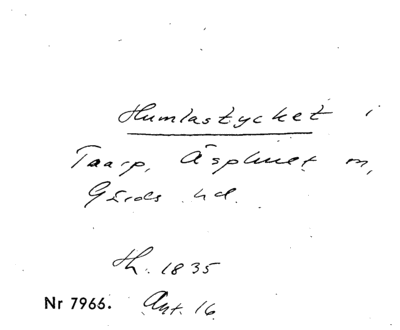 Humlastycket i
Taarp, Äsphult m,
Gärds hd.
Th. 1835
Nr 7966. Ant. 16